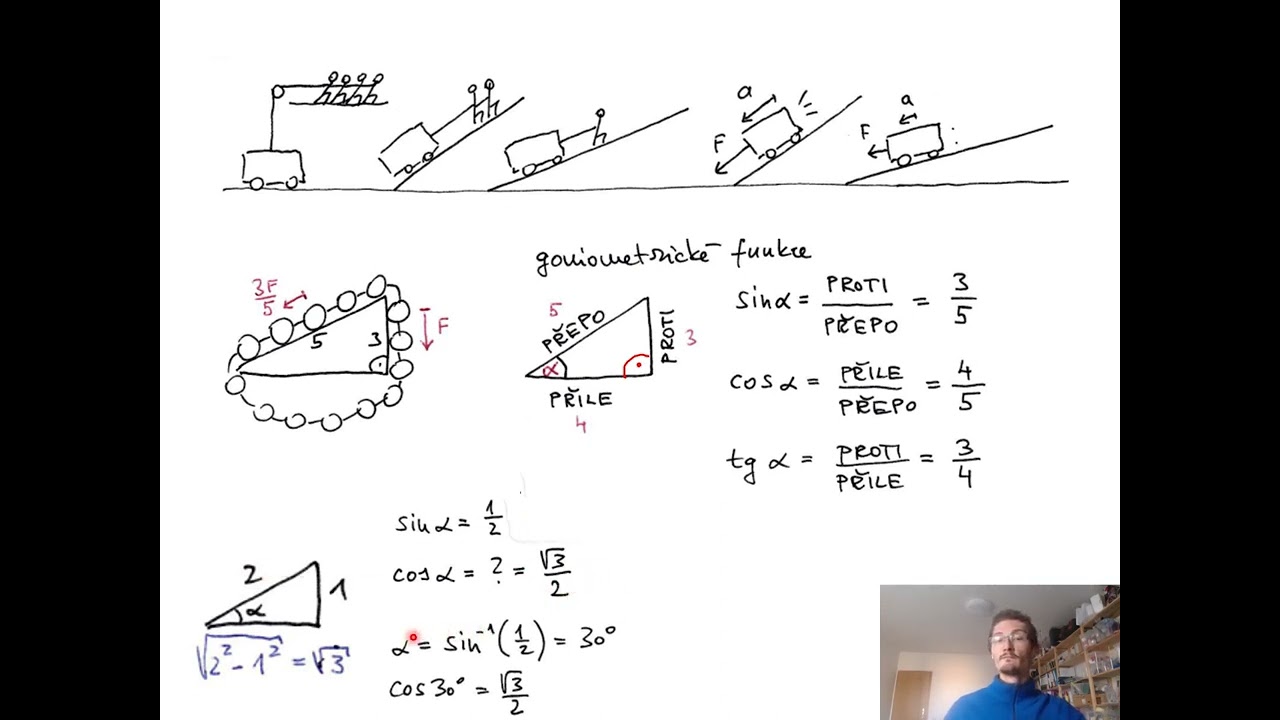 a
F
a
F
goniometrické funkce
3F/5
F
5
3
5
PŘEPO
PROTI
3
α
PŘILE
4
sin α = PROTI/PŘEPO = 3/5
cos α = PŘILE/PŘEPO = 4/5
tg α = PROTI/PŘILE = 3/4
sin α = 1/2
cos α = ? = √3/2
2
1
α
√2²-1² = √3
α = sin⁻¹(1/2) = 30°
cos 30° = √3/2